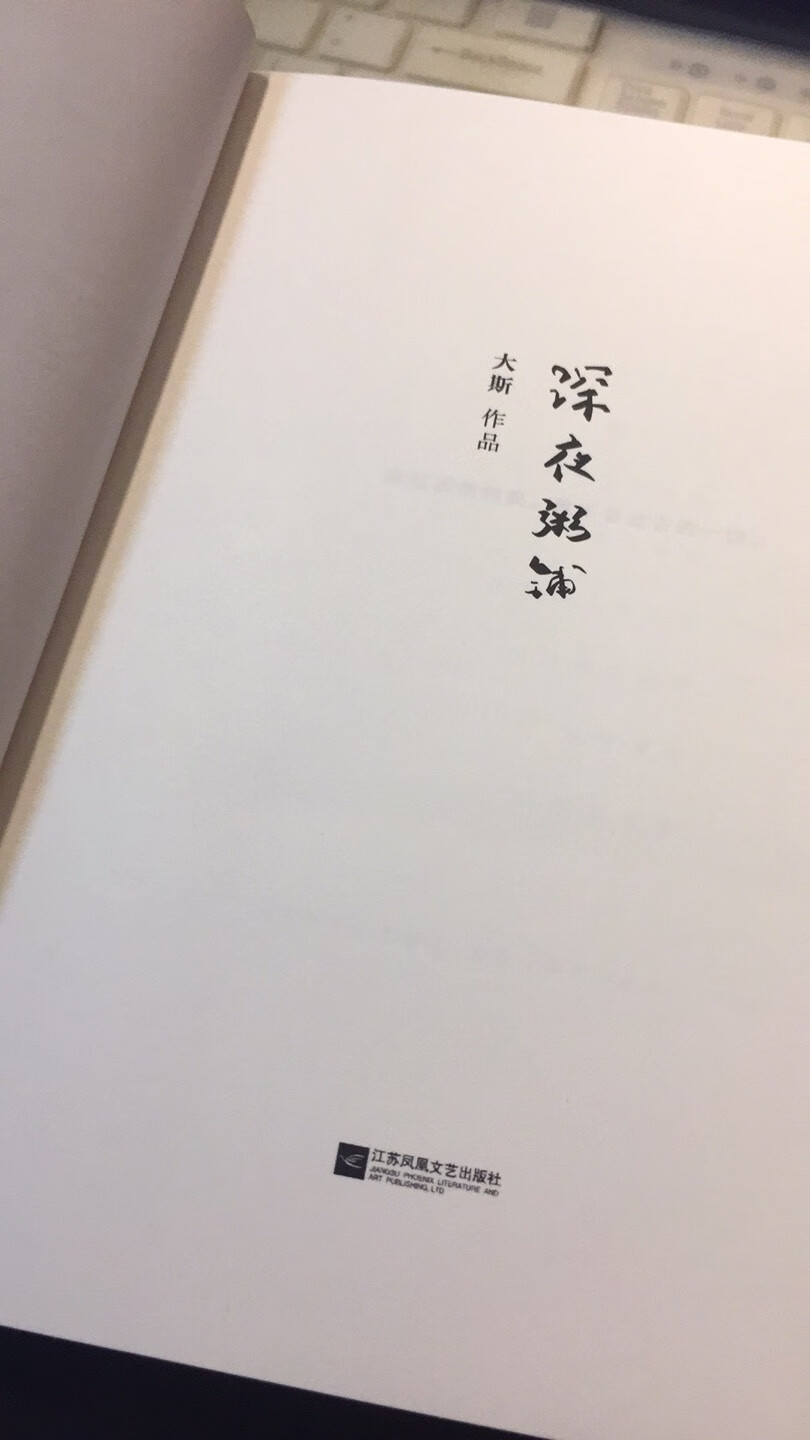 深夜粥铺
大斯 作品
江苏凤凰文艺出版社
JIANGSU PHOENIX LITERATURE AND
ART PUBLISHING, LTD